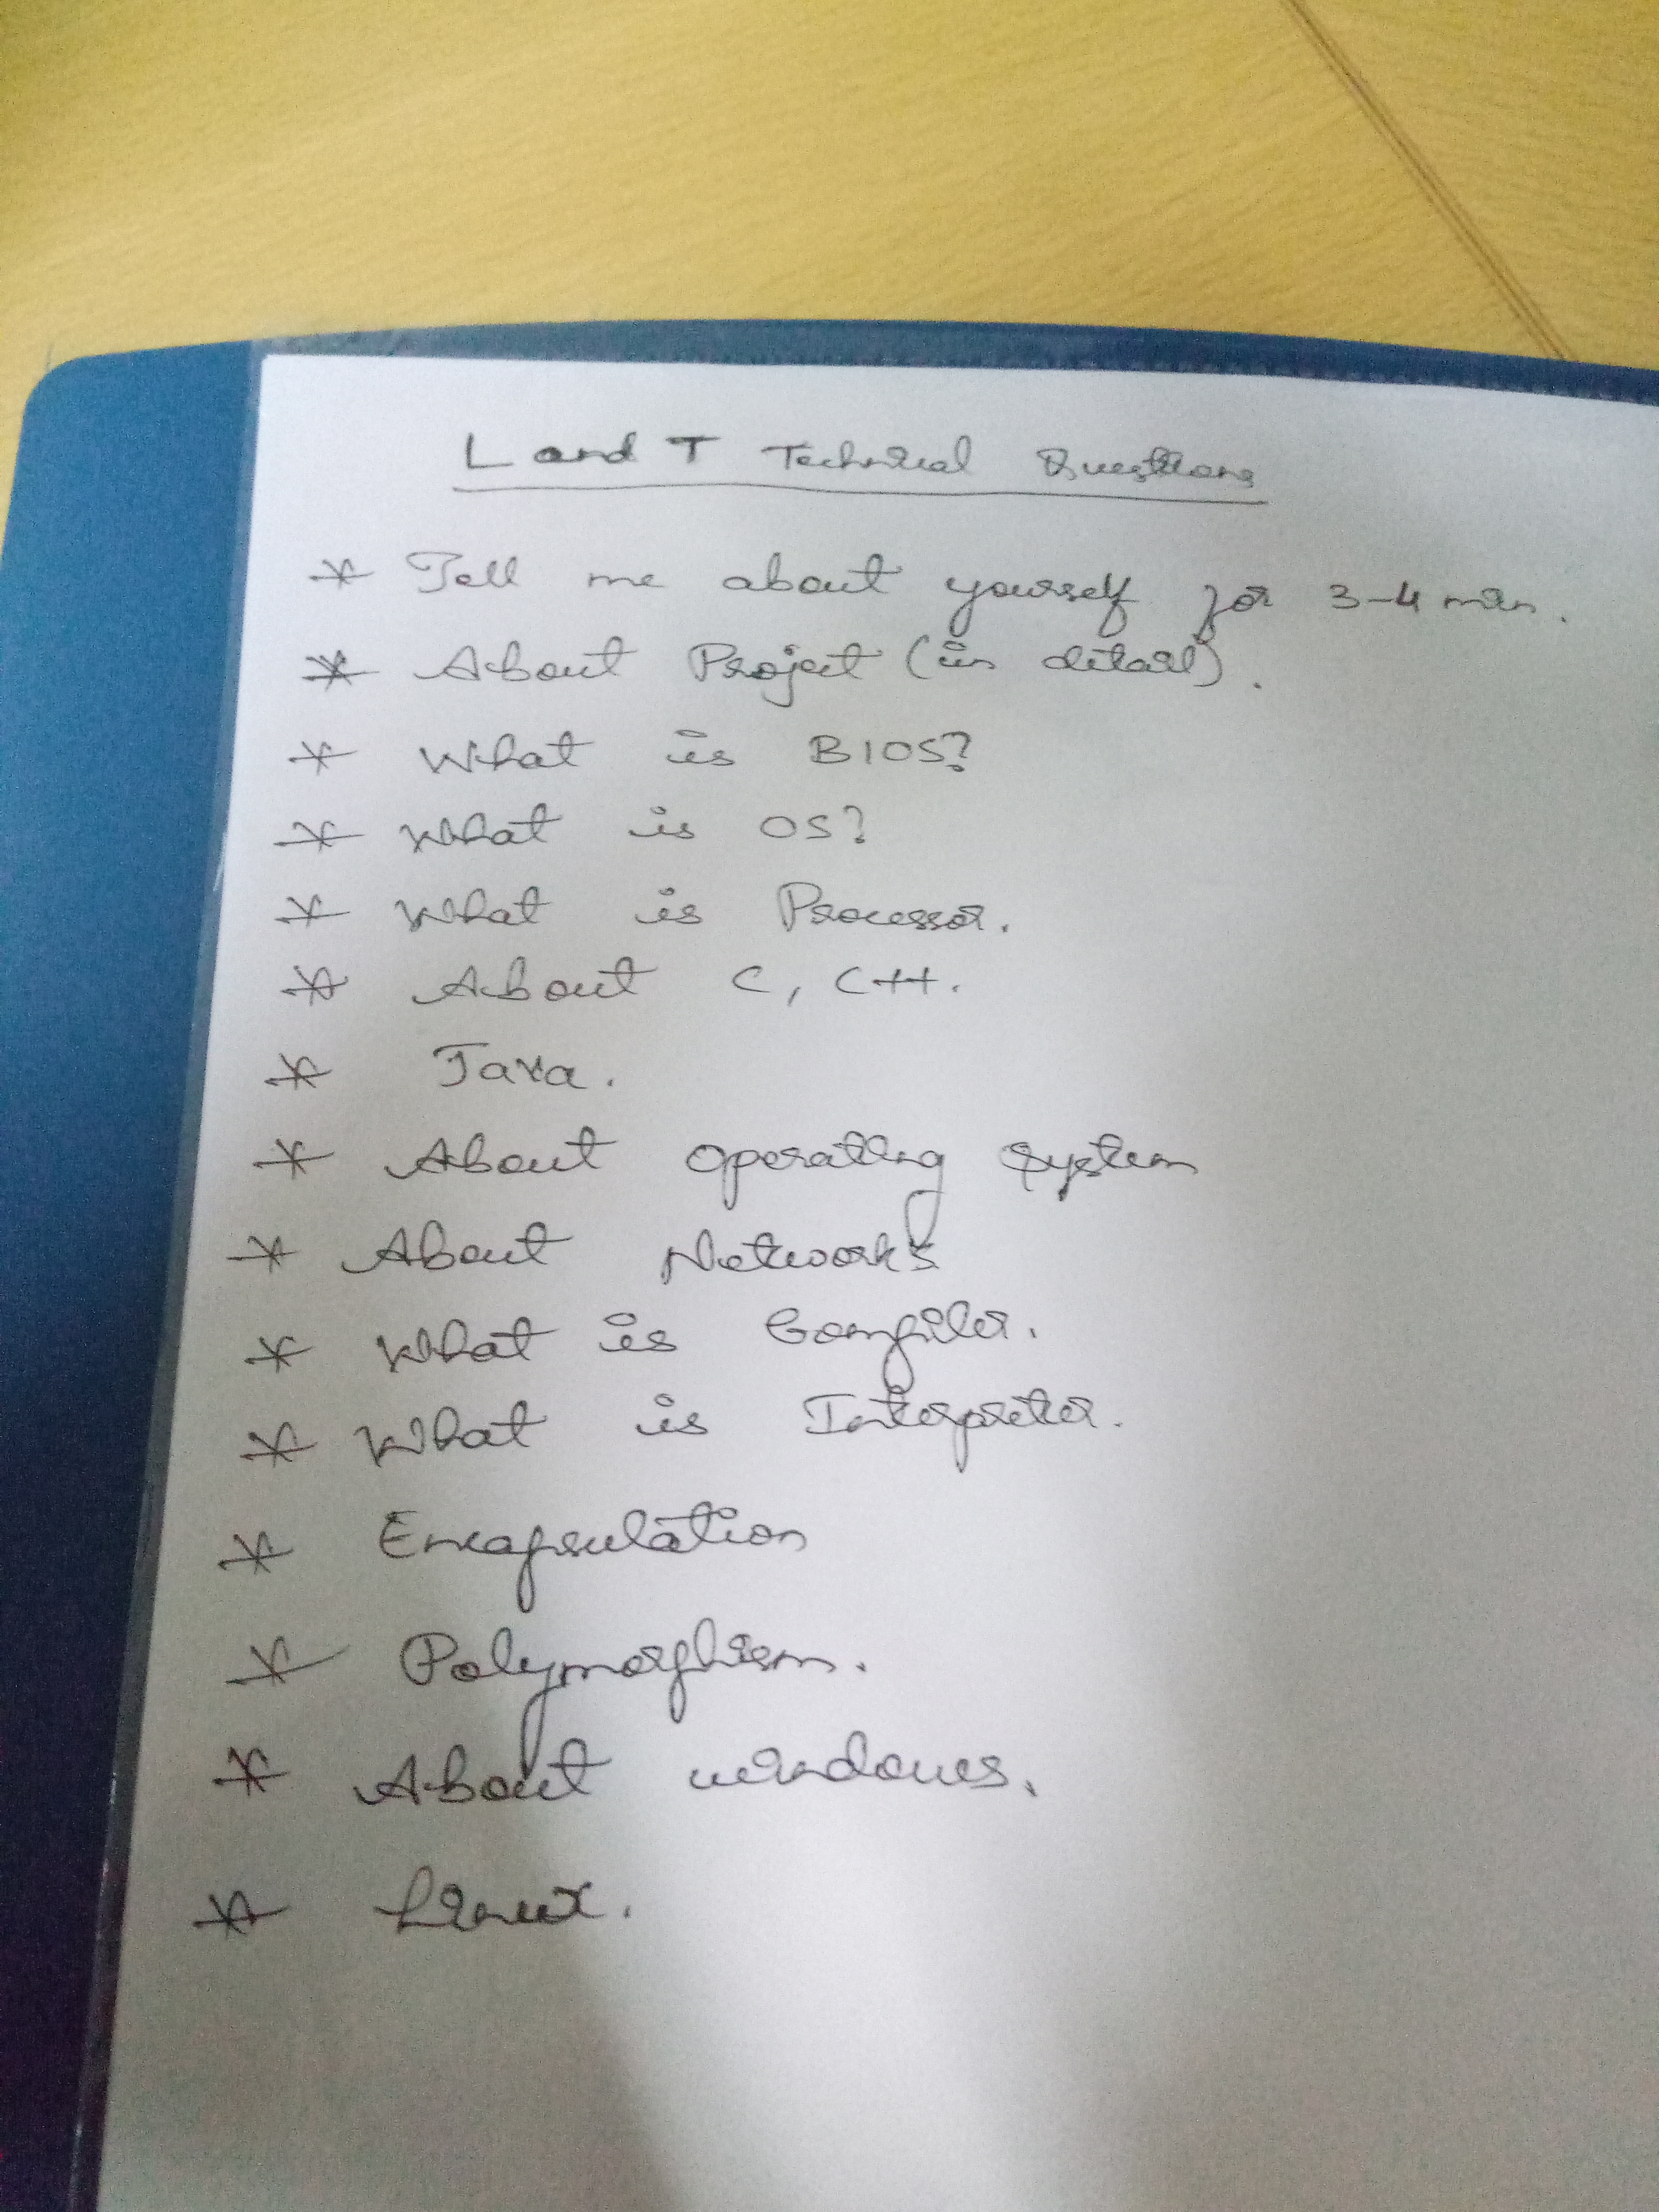 L and T Technical Questions
* Tell me about yourself for 3-4 min.
* About Project (in detail).
* What is BIOS?
* What is OS?
* What is Processor.
* About C, C++.
* Java.
* About operating system
* About Networks
* What is Compiler.
* What is Interpreter.
* Encapsulation
* Polymorphism.
* About windows.
* Linux.